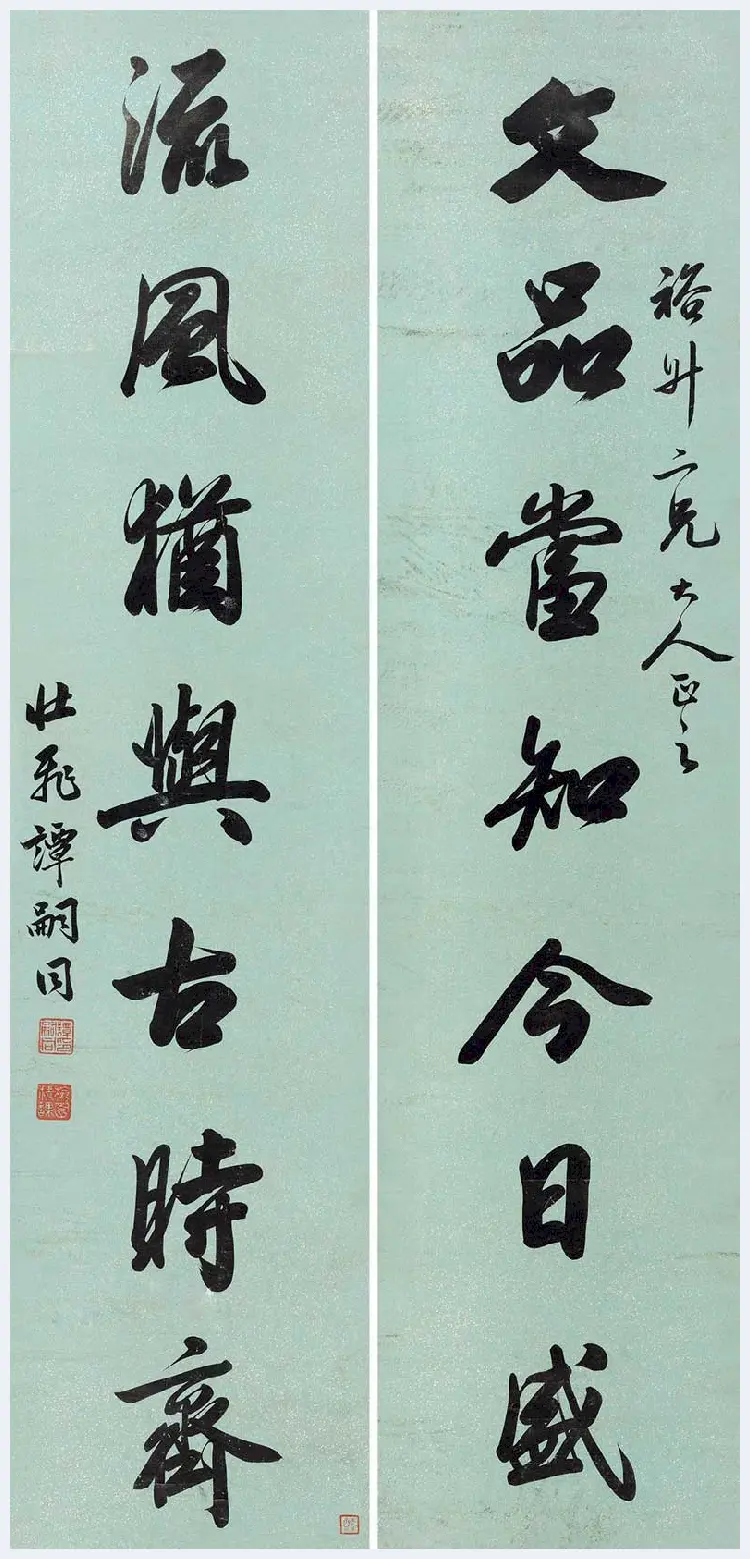 裕升兄大人正之
文品當知今日盛
流風猶與古時齊
壯飛譚嗣同